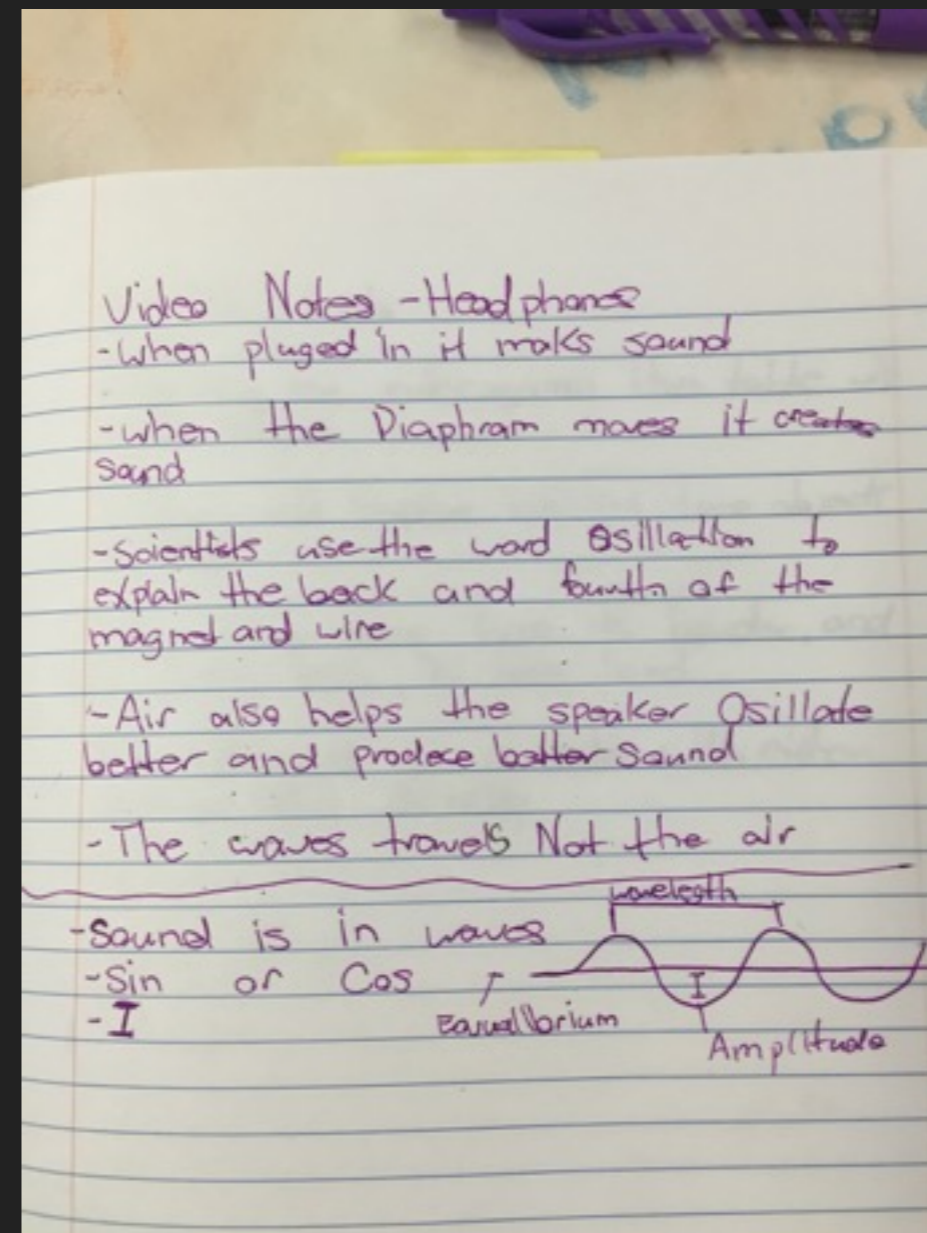 Video Notes - Headphones
- When pluged in it maks sound
- when the Diaphram moves it creates
sound
- Scientists use the word Osillation to
explain the back and fourth of the
magnet and wire
- Air also helps the speaker Osillate
better and produce better Sound
- The waves travels Not the air
wavelegth
- Sound is in waves
- Sin or Cos
- I
I
Equallbrium
Amplitude